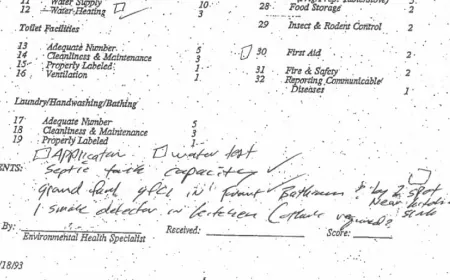 11 Water Supply 10
12 Water Heating 3
Toilet Facilities
13 Adequate Number 5
14 Cleanliness & Maintenance 3
15 Properly Labeled 1
16 Ventilation 1
Laundry/Handwashing/Bathing
17 Adequate Number 5
18 Cleanliness & Maintenance 3
19 Properly Labeled 1
28 Food Storage 2
29 Insect & Rodent Control 2
30 First Aid 2
31 Fire & Safety 2
32 Reporting Communicable
Diseases 1
Application water test
NTS: Septic tank capacity
ground fault gfci in front Bathroom & by 2 spot
Near kitchen sink
1 smoke detector in kitchen (others required?
By: Received: Score:
Environmental Health Specialist
/18/93